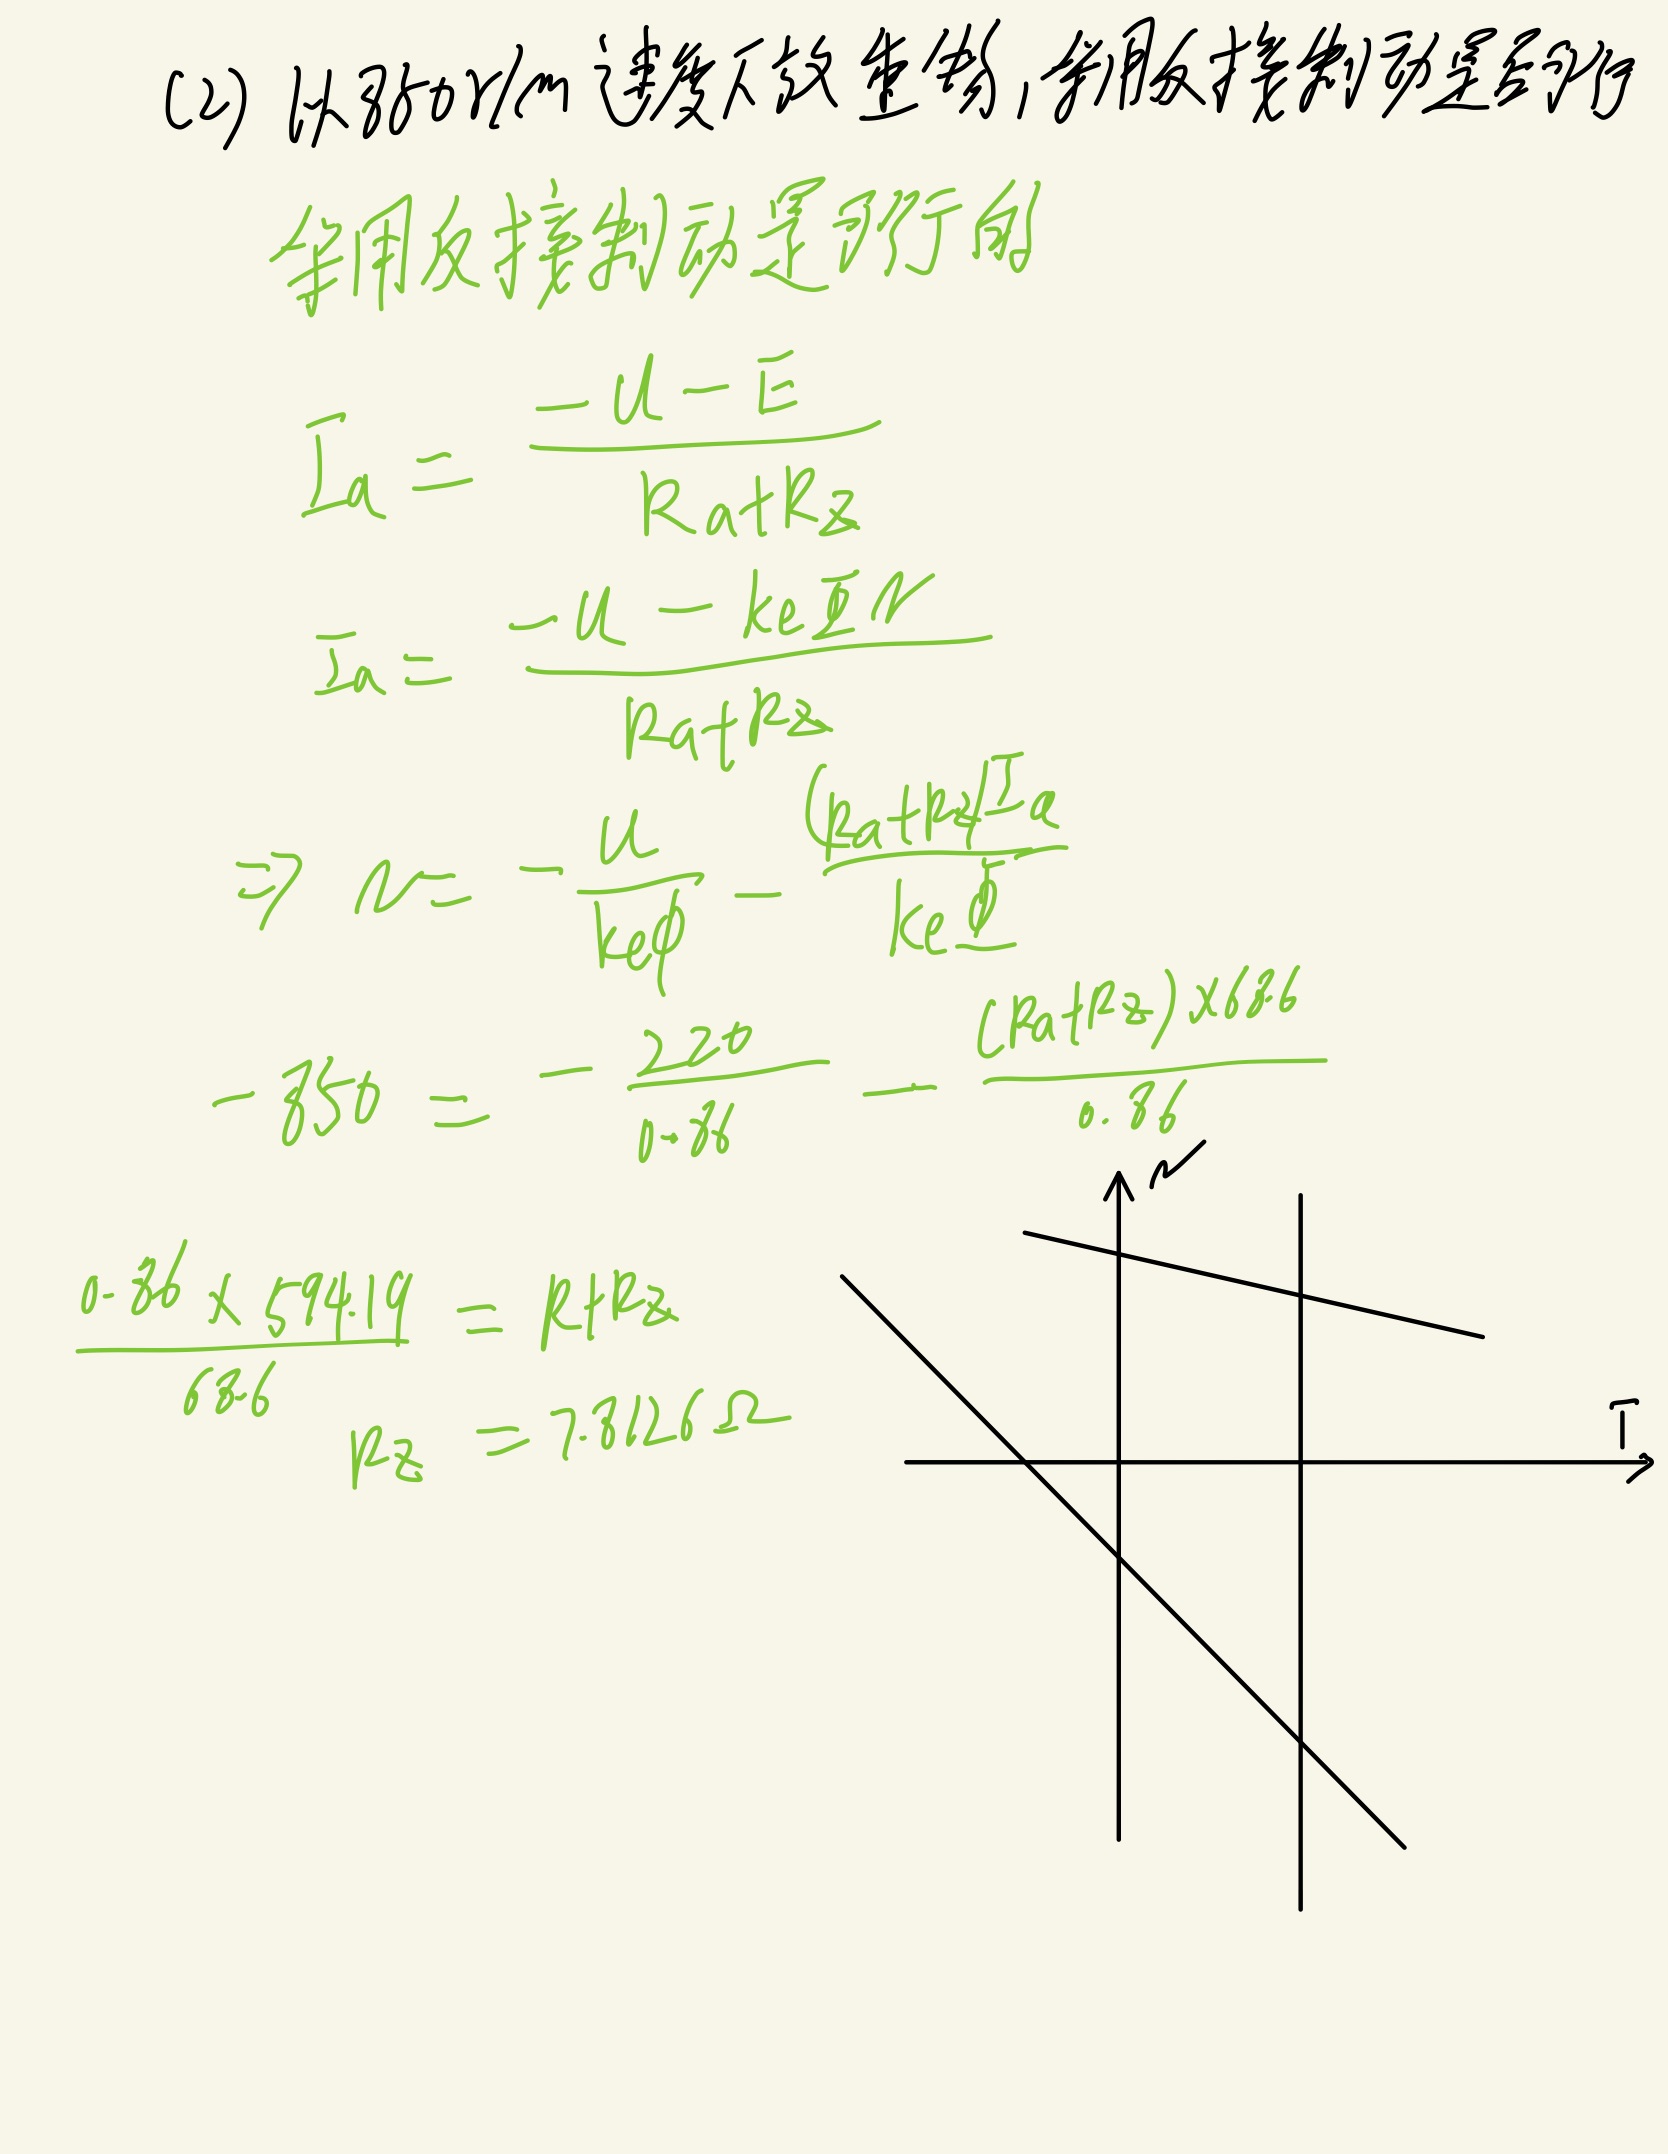 (2) 以850r/m速度下放重物,采用反接制动是否可行
采用反接制动是可行的
Ia = (-U - E) / (Ra+Rz)
Ia = (-U - keΦN) / (Ra+Rz)
⇒ N = -U/(keϕ) - (Ra+Rz)Ia/(keΦ)
-850 = -220/0.86 - (Ra+Rz)×68.6/0.86
N
0.86×594.19/68.6 = R+Rz
T
Rz = 7.8126Ω